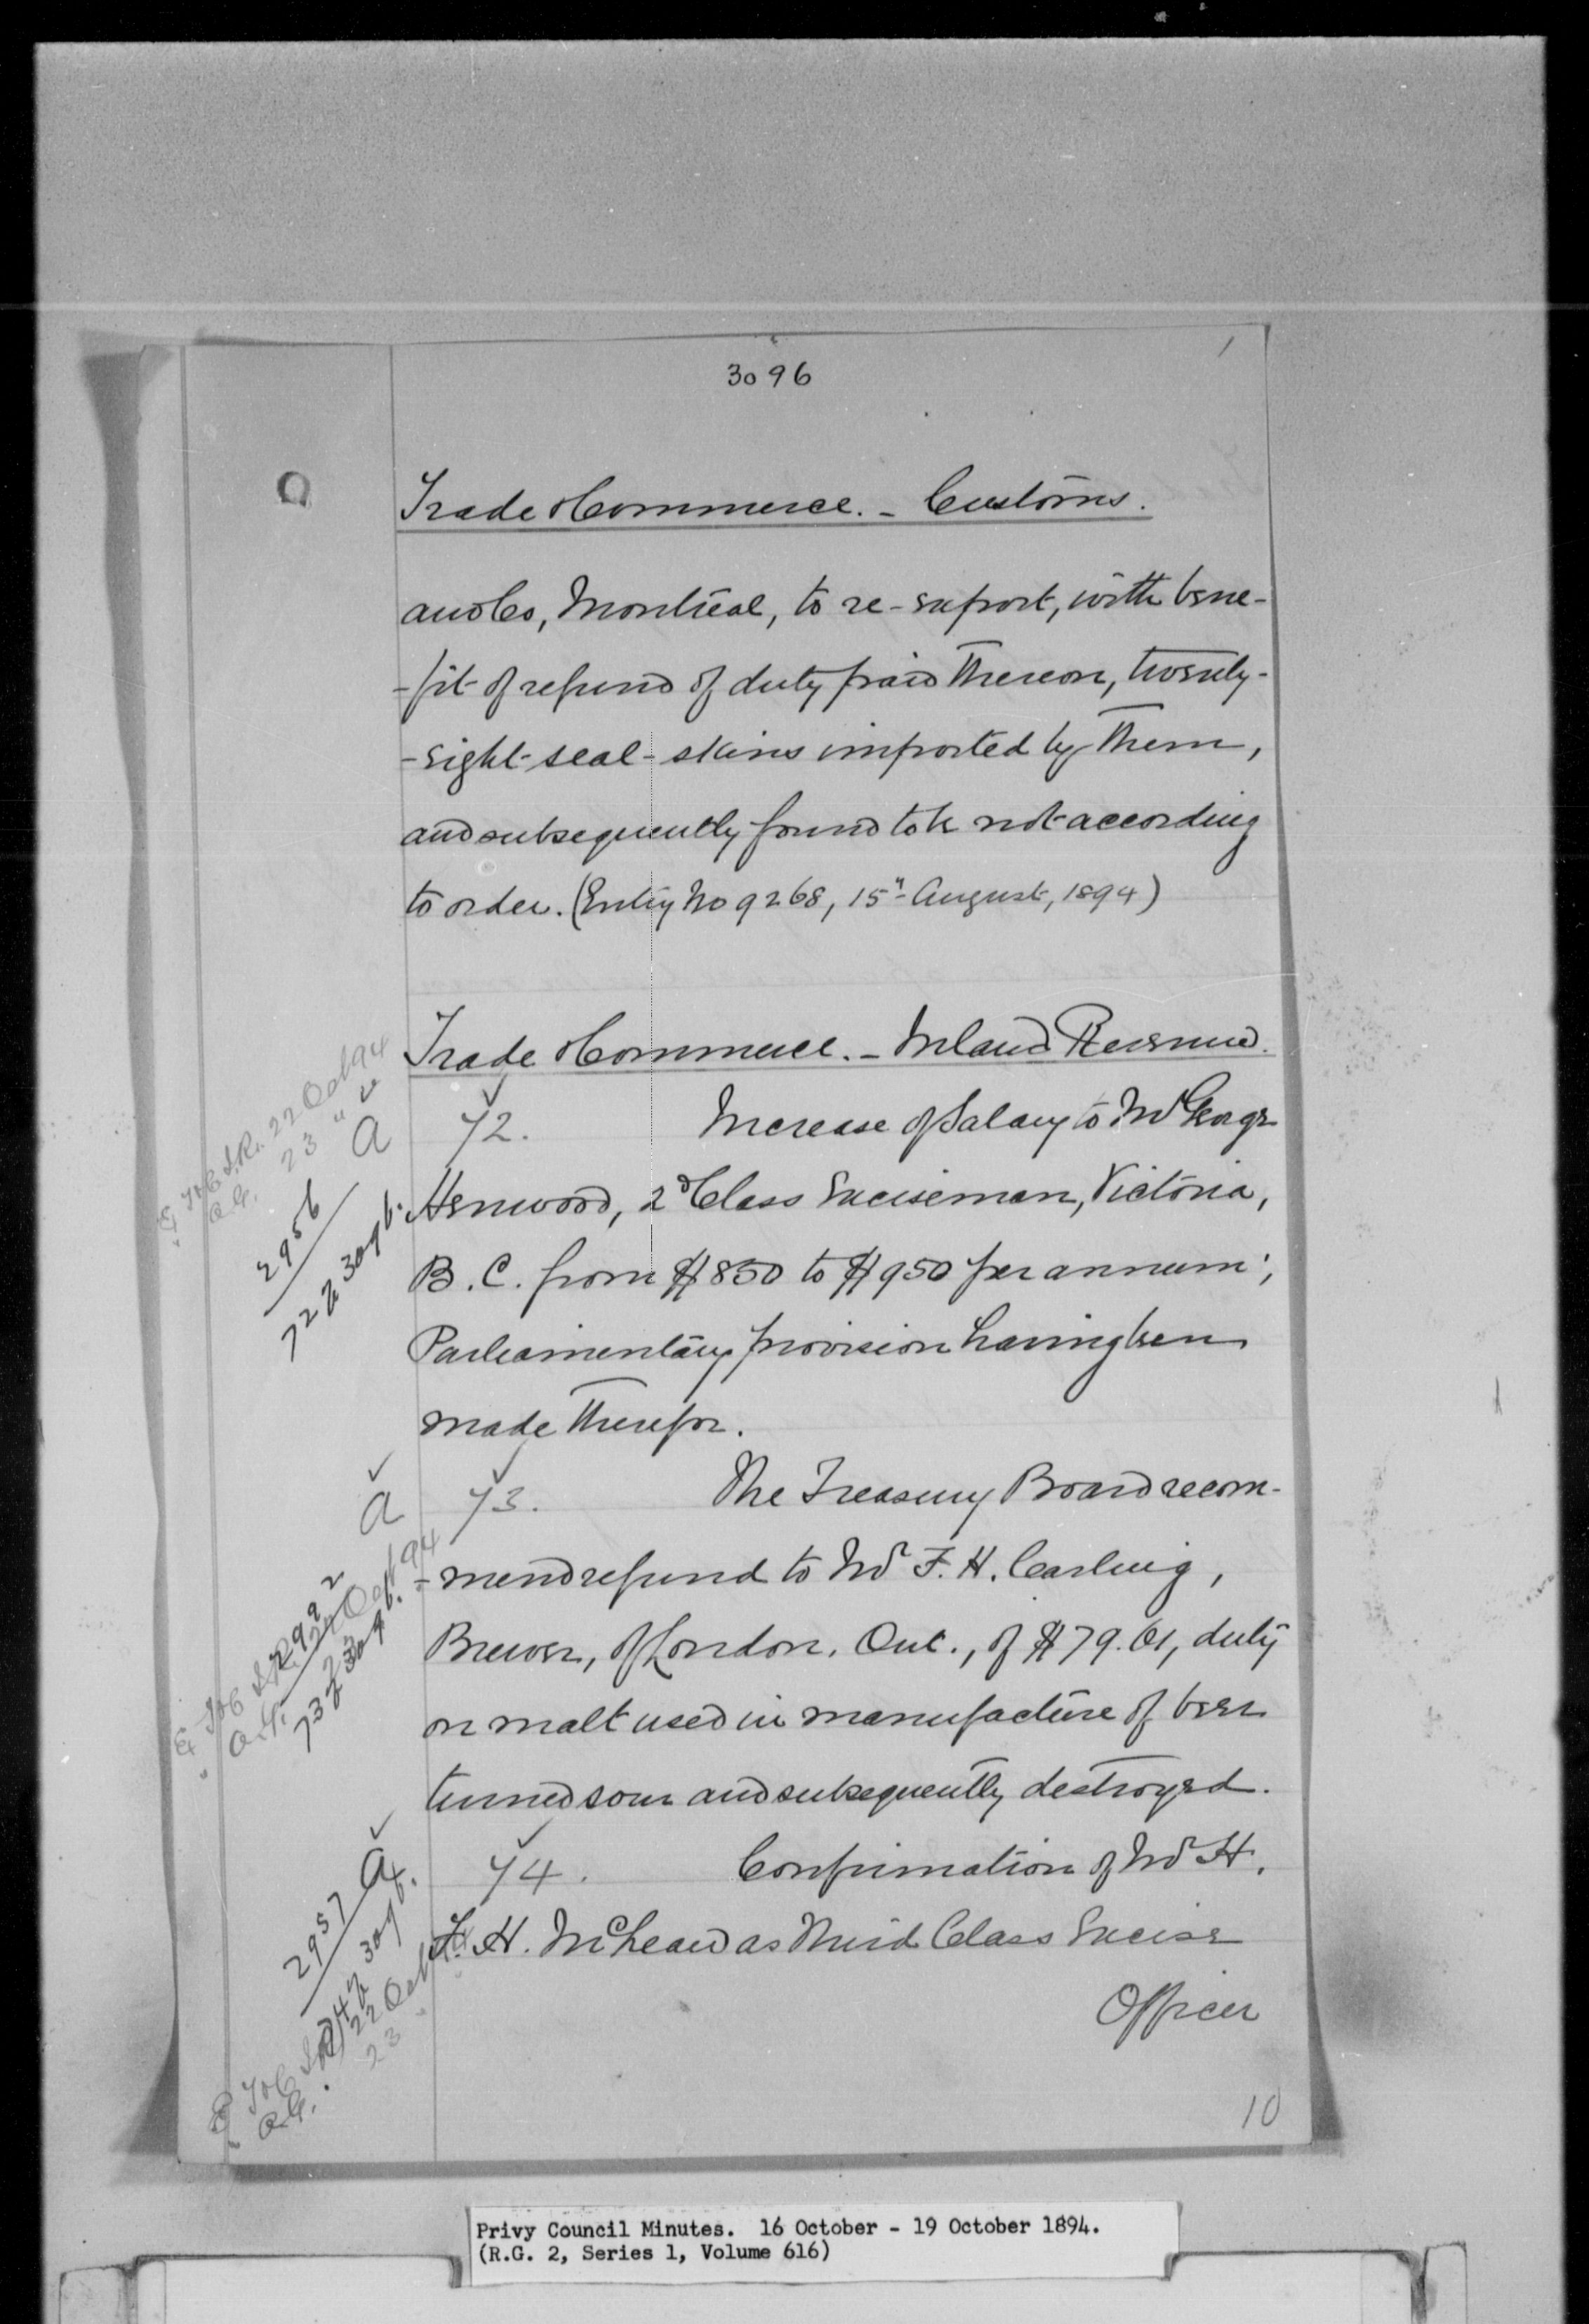 3096
Trade & Commerce. - Customs.
and Co, Montreal, to re-export, with bene-
-fit of refund of duty paid thereon, twenty-
-eight seal-skins imported by them,
and subsequently found to be not according
to order. (Entry No 9268, 15" August, 1894)
Trade & Commerce. - Inland Revenue.
72. Increase of Salary to Mr George
Henwood, 2d Class Exciseman, Victoria,
B.C. from $850 to $950 per annum;
Parliamentary provision having been
made therefor.
73. The Treasury Board recom-
-mend refund to Mr F. H. Carling,
Brewer, of London, Ont., of $79.61, duty
on malt used in manufacture of beer
turned sour and subsequently destroyed.
74. Confirmation of Mr H.
H. McLean as Third Class Excise
Officer
a
2956
22 Oct 94
23 "
a
2992
a
2957
22 Oct
23 "
10
Privy Council Minutes. 16 October - 19 October 1894.
(R.G. 2, Series 1, Volume 616)